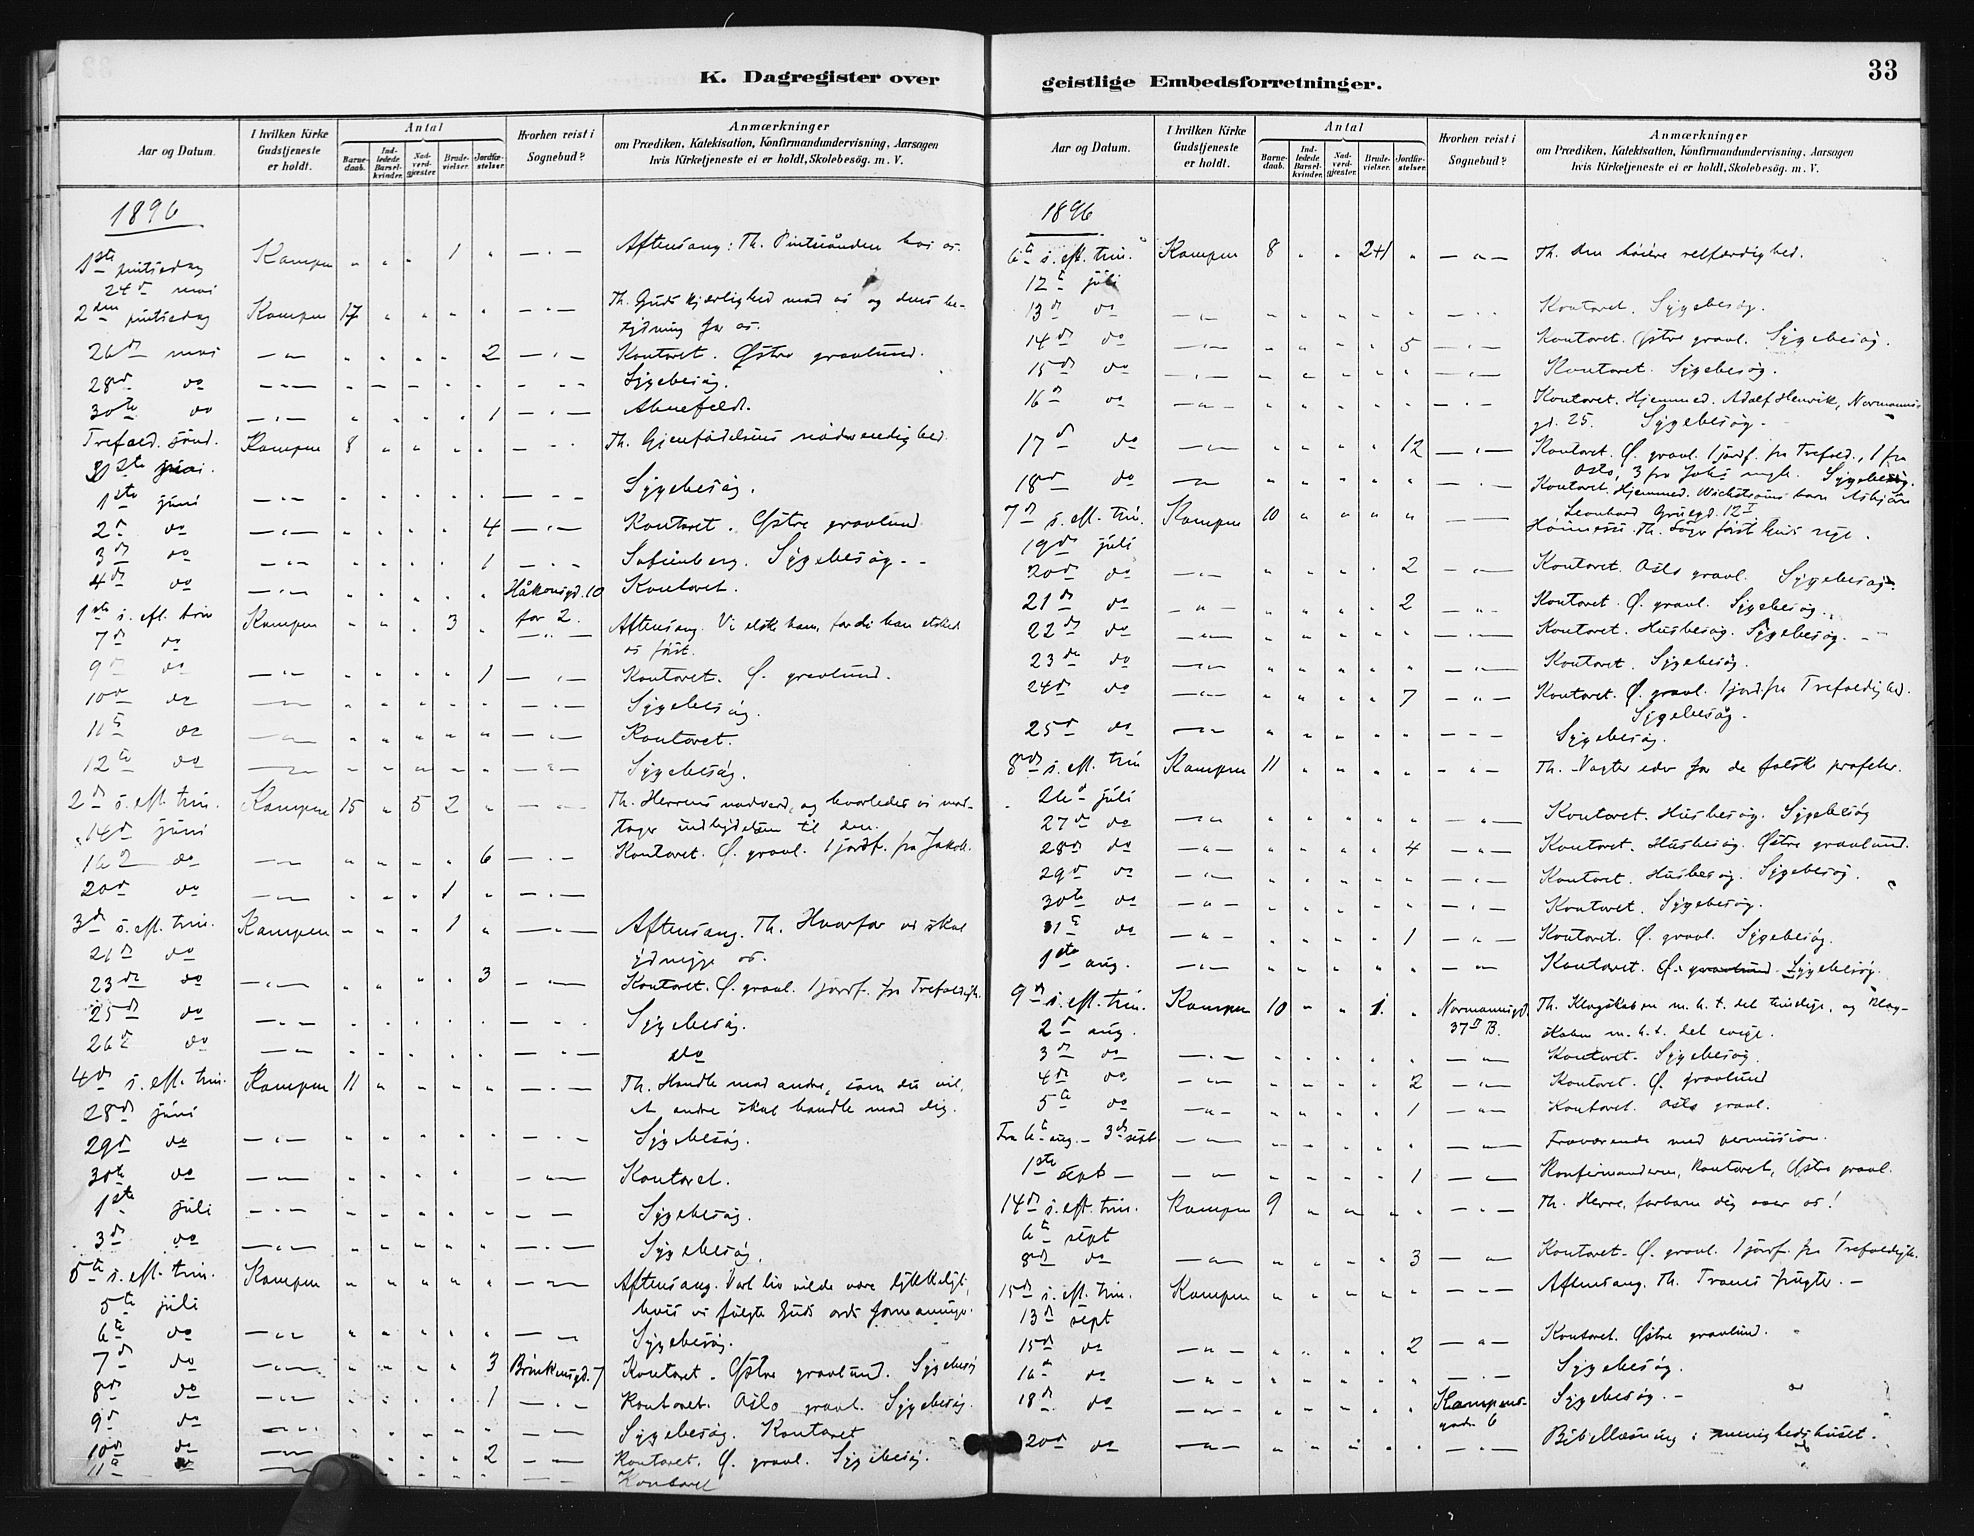 K. Dagregister over
Aar og Datum.
I hvilken Kirke Gudstjeneste er holdt.
Antal
Barne-daab.
Ind-ledede Barsel-kvinder.
Nad-verd-gjæster.
Brude-vielser.
Jordfæ-stelser.
Hvorhen reist i Sognebud?
Anmærkninger
om Prædiken, Katekisation, Konfirmandundervisning, Aarsagen
hvis Kirketjeneste ei er holdt, Skolebesög. m. V.
1896
1ste pintsedag Kampen " " " 1 " — " — Aftensang: Th. Pintseånden hos os.
24d mai
2den pintsedag Kampen 17 " " " " — " — Th. Guds kjærlighed mod os og dens be-
tydning for os.
26d mai — " — " " " " 2 — " — Kontoret. Østre gravlund.
28d do — " — Sygebesøg.
30te do — " — " " " " 1 — " —
Trefold. sønd. Kampen 8 " " " " — " Th. Gjenfødelsens nødvendighed.
31ste mai.
1ste juni — " — Sygebesøg.
2d do — " — " " " " 4 — " — Kontoret. Østre gravlund
3d do — " — " " " " 1 — " — Sofienberg. Sygebesøg —
4d do — " — " " " " " Håkonsgd. 10 Kontoret.
for 2.
1ste s. eft. trin Kampen " " " 3 " — " — Aftensang. Vi elske ham, fordi han elsked
os først.
7d do
9d do — " — " " " " 1 — " — Kontoret. Ø. gravlund.
10d do — " — Sygebesøg.
11te do — " — Kontoret.
12te do — " — Sygebesøg.
2d s. eft. trin. Kampen 15 " 5 2 " — " — Th. Herrens nadverd, og hvorledes vi mod-
tager indbydelsen til den.
14d juni
16d do — " — " " " " 6 — " — Kontoret. Ø. gravl. 1 jordf. fra Jakob.
20d do — " — " " " 1 " — " —
3d s. eft. trin. Kampen " " " 1 " — " — Aftensang. Th. Hvorfor vi skal
ydmyge os.
21d do
23de do — " — " " " " 3 — " — Kontoret. Ø. gravl. 1 jordf. fra Trefoldigh.
25d do — " — Sygebesøg.
26d do — " — do
4d s. eft. trin. Kampen 11 " " " " — " — Th. Handle mod andre, som du vil,
at andre skal handle mod dig.
28d juni
29d do — " — Sygebesøg.
30te do — " — Kontoret.
1ste juli Sygebesøg.
3d do — " — Sygebesøg.
5te s. eft. trin. Kampen " " " " " — " — Aftensang. Vort liv vilde være lykkeligt,
hvis vi fulgte Guds ords formaninger.
5te juli
6te do — " — Sygebesøg.
7d do — " — " " " " 3 Brinkensgd. 7 Kontoret. Østre gravlund. Sygebesøg
8d do — " — " " " " 1 — " — Kontoret. Oslo gravl. Sygebesøg.
9d do — " — Sygebesøg. Kontoret
10d do — " — " " " " 2 — " — Kontoret. Ø. gravl. Sygebesøg.
11te do — " — Kontoret
geistlige Embedsforretninger.
33
Aar og Datum.
I hvilken Kirke Gudstjeneste er holdt.
Antal
Barne-daab.
Ind-ledede Barsel-kvinder.
Nad-verd-gjæster.
Brude-vielser.
Jordfæ-stelser.
Hvorhen reist i Sognebud?
Anmærkninger
om Prædiken, Katekisation, Konfirmandundervisning, Aarsagen
hvis Kirketjeneste ei er holdt, Skolebesög. m. V.
1896
6te s. eft. trin. Kampen 8 " " 2+1 " — " — Th. Den høiere retfærdighed.
12te juli
13d do — " — Kontoret. Sygebesøg.
14d do — " — " " " " 5 — " — Kontoret. Østre gravl. Sygebesøg.
15d do — " — Kontoret. Sygebesøg.
16d do — " — Kontoret. Hjemmed. Adolf Henrik, Normannsgd. 25. Sygebesøg —
17d do — " — " " " " 12 — " — Kontoret. Ø. gravl. 1 jordf. fra Trefold., 1 fra
Oslo, 3 fra Sygebesøg.
18d do — " — Kontoret. Hjemmed.
Leonhard Grüegd. 12
7d s. eft. trin. Kampen 10 " " " " — " — Th. Søger først Guds rige.
19d juli
20d do — " — " " " " 2 — " — Kontoret. Oslo gravl. Sygebesøg.
21d do — " — " " " " 2 — " — Kontoret. Ø. gravl. Sygebesøg.
22d do — " — Kontoret. Husbesøg. Sygebesøg. —
23de do — " — Kontoret. Sygebesøg.
24d do — " — " " " " 7 — " — Kontoret. Ø. gravl. 1 jord. fra Trefoldighed.
Sygebesøg.
25d do — " — Sygebesøg.
8de s. eft. trin Kampen 11 " " " " — " — Th. Vogter eder for de falske profeter.
26d juli
27d do — " — Kontoret. Husbesøg. Sygebesøg
28d do — " — " " " " 4 — " — Kontoret. Husbesøg. Østre gravlund.
29d do — " — Kontoret. Husbesøg. Sygebesøg.
30te do — " — Kontoret. Sygebesøg.
31te do — " — " " " " 1 — " — Kontoret. Ø. gravl. Sygebesøg.
1ste aug. — " — Kontoret. Ø. gravlund. Sygebesøg.
9d s. eft. trin. Kampen 10 " " 1 " Normannsgd. 37 B. Th. Klogskaben m. h. t. det timelige, og klog-
skaben m. h. t. det evige.
2d aug.
3d do — " — Kontoret. Sygebesøg.
4d do — " — " " " " 2 — " — Kontoret. Ø. gravlund
5te do — " — " " " " 1 — " — Kontoret. Oslo gravl.
Fra 6te aug. – 3d sept — " — Fraværende med permission.
1ste sept — " — " " " " 1 — " — Konfirmanderne, Kontoret, Østre gravl.
14d s. eft. trin. Kampen 9 " " " " — " — Th. Herre, forbarm dig over os!
6te sept
8d do — " — " " " " 3 — " — Kontoret. Ø. gravl. 1 jordf. fra Trefoldigh.
15d s. eft. trin. Kampen " " " " " — " — Aftensang. Th. Troens frugter. —
13d sept
15d do — " — " " " " 2 — " — Kontoret. Østre gravlund.
16d do — " — Sygebesøg.
18d do — " — Kampens-
gaden 6 Sygebesøg. —
20d do — " — Bibellæsning i menighedshuset.